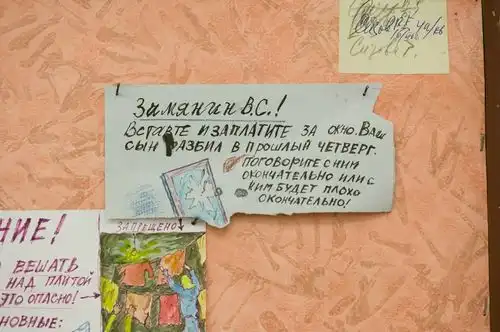 Сизова Г.
Замянин В.С.!
Вставте и заплатите за окно. Ваш
сын разбил в прошлый четверг.
Поговорите с ним
окончательно или с
ким будет плохо
окончательно!
НИЕ!
ВЕШАТЬ
НАД ПЛИТОЙ
ЭТО ОПАСНО!
НОВНЫЕ:
ЗАПРЕЩЕНО